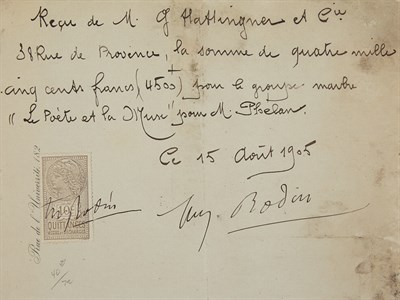 Reçu de M. G Hattingner et Cie
38 Rue de Provence, la somme de quatre mille
cinq cents francs (4500) pour le groupe marbre
"Le Poète et la Muse" pour M. Phelan.
Ce 15 Août 1905
Aug. Rodin
Rue de l'Université, 182
10c
QUITTANCES
Rodin